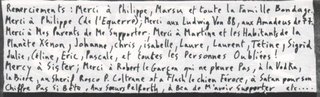 Remerciements : Merci à Philippe, Marsu et toute la Famille Bondage.
Merci à Philippe (de l'Equerre), Merci aux Ludwig Von 88, aux Amadeus de 77.
Merci à Mes Parents de Me Supporter, Merci à Martine et les Habitants de la
Planète Xénon, Johanne, chris, isabelle, Laure, Laurent, Tétine, Sigrid
Julie, Céline, Eric, Pascale, et toutes les Personnes Oubliées!
Mercy à Sister; Merci à Robert le Garou qui ne pleure Pas, à la Vodka,
la Bière, au Sherif Rosco P. Coltrane et à Flack le chien féroce, à Satan pour son
Chiffre Pas Si Bête, Aux Sœurs Delforth, à Bea de M'avoir Supporter etc....